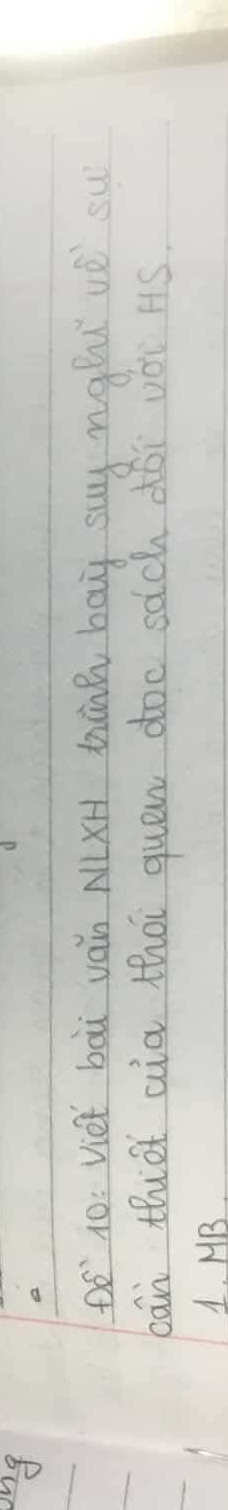 Đề 10: Viết bài văn NLXH trình bày suy nghĩ về sự
cần thiết của thói quen đọc sách đối với HS.
1. MB
ong